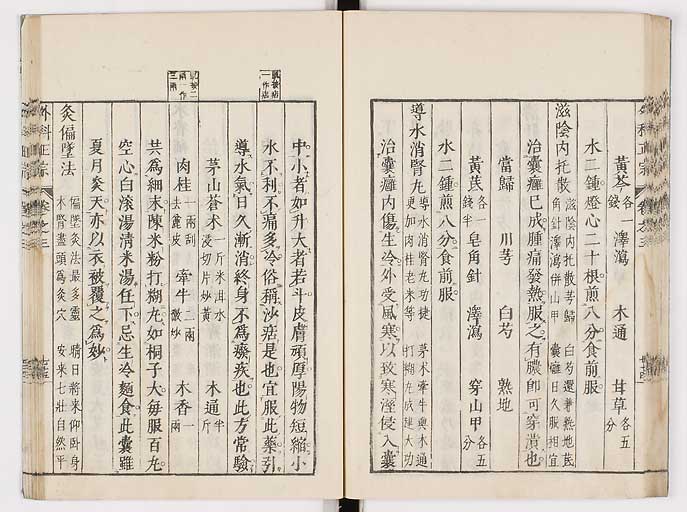 黃芩 各一錢 澤瀉 木通 甘草 各五分
水二鍾燈心二十根煎八分食前服
滋陰內托散 滋陰內托散芎歸 白芍還兼熟地芪
角針澤瀉併山甲 囊癰日久服相宜
治囊癰已成腫痛發熱服之有膿即可穿潰也
當歸 川芎 白芍 熟地
黃芪 各一錢半 皂角針 澤瀉 穿山甲 各五分
水二鍾煎八分食前服
導水消腎丸 導水消腎丸功捷 茅术牽牛與木通
更加肉桂老米等 打糊丸成建大功
治囊癰內傷生冷外受風寒以致寒溼侵入囊
中小者如升大者若斗皮膚頑厚陽物短縮小
水不利不痛多冷俗稱沙㾏是也宜服此藥引
導水氣日久漸消終身不為癈疾也此方常驗
茅山蒼术 一斤米泔水浸切片炒黃 木通 半斤
肉桂 一兩刮去麄皮 牽牛 二兩微炒 木香 一兩
共為細末陳米粉打糊丸如桐子大每服百丸
空心白滾湯清米湯任下忌生冷麵食此囊雖
夏月炎天亦以衣被覆之為妙
灸偏墜法 偏墜灸法最多靈 晴日將来仰卧身
木腎盡頭為灸穴 安来七壯自然平
外科正宗
卷之三